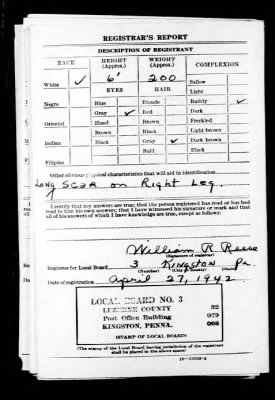 REGISTRAR'S REPORT
DESCRIPTION OF REGISTRANT
RACE HEIGHT (Approx.) WEIGHT (Approx.) COMPLEXION
6' 200 Sallow
White ✓ EYES HAIR Light
Negro Blue Blonde Ruddy ✓
Gray ✓ Red Dark
Oriental Hazel Brown Freckled
Brown Black Light brown
Indian Black Gray ✓ Dark brown
Bald Black
Filipino
Other obvious physical characteristics that will aid in identification
Long Scar on Right Leg.
I certify that my answers are true; that the person registered has read or has had
read to him his own answers; that I have witnessed his signature or mark and that
all of his answers of which I have knowledge are true, except as follows:
William R. Reese
(Signature of registrar)
Registrar for Local Board 3 Kingston Pa.
(Number) (City or county)
Date of registration April 27, 1942
LOCAL BOARD NO. 3
LUZERNE COUNTY 32
Post Office Building 079
KINGSTON, PENNA. 003
(STAMP OF LOCAL BOARD)
(The stamp of the Local Board having jurisdiction of the registrant
shall be placed in the above space)